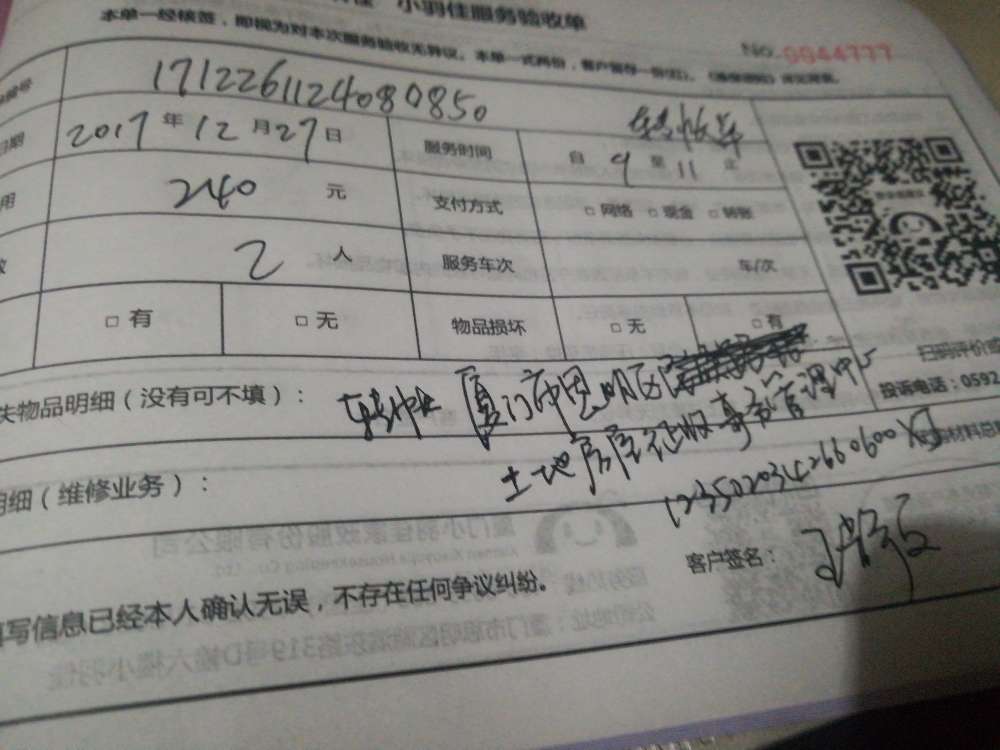 小羽佳服务验收单
本单一经核签，即视为对本次服务验收无异议。本单一式两份，客户留存一份
No. 9944777
171226112408 0850
2017 年 12 月 27 日 服务时间 自 9 至 11 止
240 元 支付方式 □ 网络 □ 现金 □ 转账
2 人 服务车次 车/次
□ 有 □ 无 物品损坏 □ 无 □ 有
扫码评价或
投诉电话：0592
失物品明细（没有可不填）：
厦门市思明区
土地房屋征收事务管理中心
明细（维修业务）：
材料总
12350203426606600
客户签名：
填写信息已经本人确认无误，不存在任何争议纠纷。